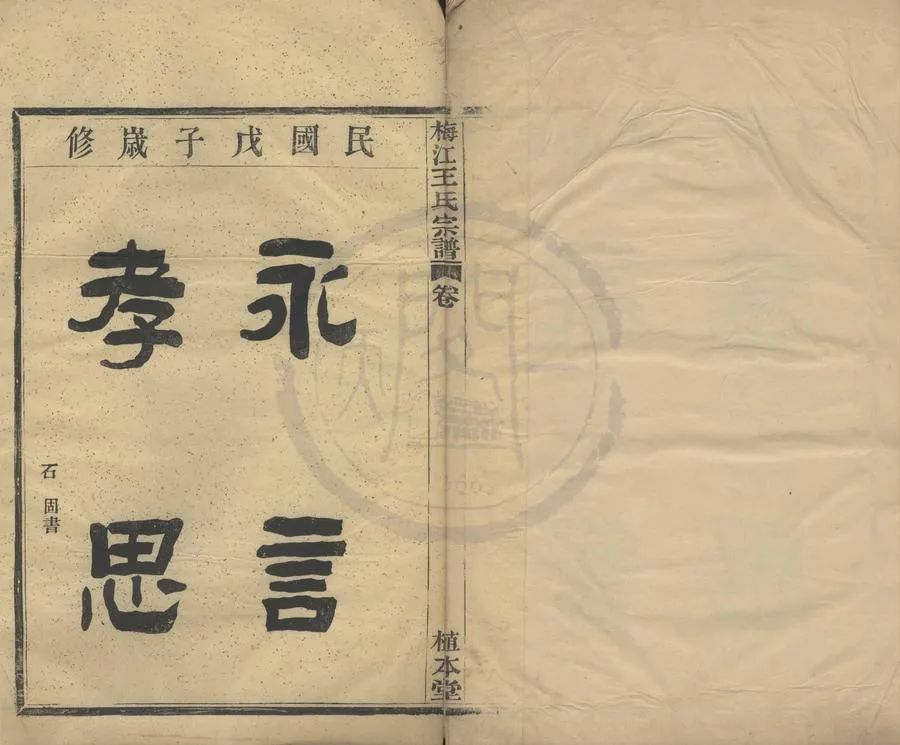 民國戊子歲修
永言
孝思
石固書
梅江王氏宗譜 卷
植本堂